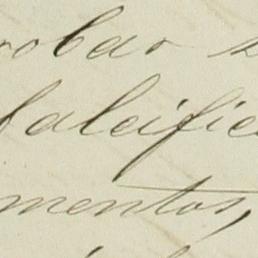 robar
falcific
mentos,